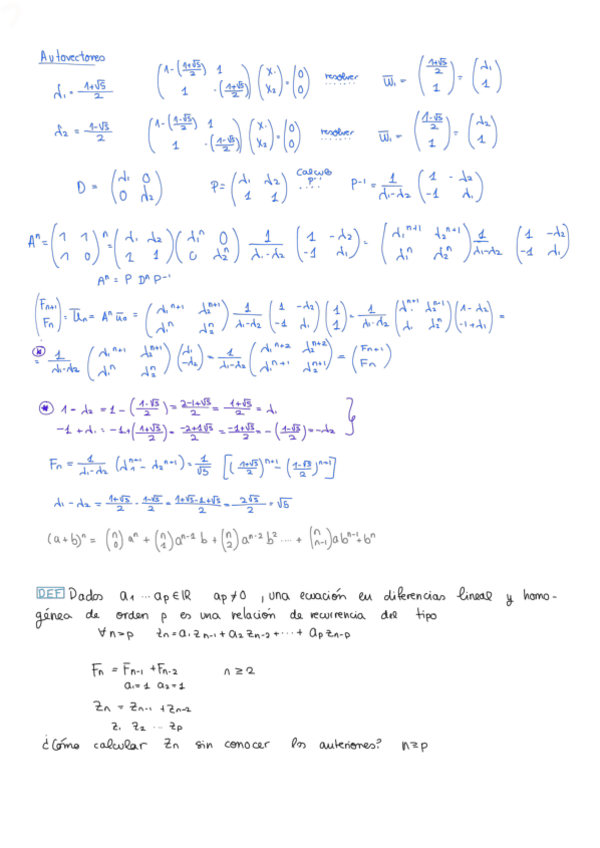 Autovectores
λ₁ = (1+√5)/2   (1-((1+√5)/2)  1 ; 1  -((1+√5)/2)) (x₁ ; x₂) = (0 ; 0)   resolver ......   ū₁ = ((1+√5)/2 ; 1) = (λ₁ ; 1)
λ₂ = (1-√5)/2   (1-((1-√5)/2)  1 ; 1  -((1-√5)/2)) (x₁ ; x₂) = (0 ; 0)   resolver ......   ū₁ = ((1-√5)/2 ; 1) = (λ₂ ; 1)
D = (λ₁  0 ; 0  λ₂)   P = (λ₁  λ₂ ; 1  1)   calculo P⁻¹ ....   P⁻¹ = 1/(λ₁-λ₂) (1  -λ₂ ; -1  λ₁)
Aⁿ = (1  1 ; 1  0)ⁿ = (λ₁  λ₂ ; 1  1) (λ₁ⁿ  0 ; 0  λ₂ⁿ) 1/(λ₁-λ₂) (1  -λ₂ ; -1  λ₁) = (λ₁ⁿ⁺¹  λ₂ⁿ⁺¹ ; λ₁ⁿ  λ₂ⁿ) 1/(λ₁-λ₂) (1  -λ₂ ; -1  λ₁)
Aⁿ = P Dⁿ P⁻¹
(Fₙ₊₁ ; Fₙ) = ūₙ = Aⁿ ū₀ = (λ₁ⁿ⁺¹  λ₂ⁿ⁺¹ ; λ₁ⁿ  λ₂ⁿ) 1/(λ₁-λ₂) (1  -λ₂ ; -1  λ₁) (1 ; 1) = 1/(λ₁-λ₂) (λ₁ⁿ⁺¹  λ₂ⁿ⁺¹ ; λ₁ⁿ  λ₂ⁿ) (1-λ₂ ; -1+λ₁) =
(*) = 1/(λ₁-λ₂) (λ₁ⁿ⁺¹  λ₂ⁿ⁺¹ ; λ₁ⁿ  λ₂ⁿ) (λ₁ ; -λ₂) = 1/(λ₁-λ₂) (λ₁ⁿ⁺²  λ₂ⁿ⁺² ; λ₁ⁿ⁺¹  λ₂ⁿ⁺¹) = (Fₙ₊₁ ; Fₙ)
(*) 1-λ₂ = 1-((1-√5)/2) = (2-1+√5)/2 = (1+√5)/2 = λ₁
-1+λ₁ = -1+((1+√5)/2) = (-2+1√5)/2 = (-1+√5)/2 = -((1-√5)/2) = -λ₂ }
Fₙ = 1/(λ₁-λ₂) (λ₁ⁿ⁺¹ - λ₂ⁿ⁺¹) = 1/√5 [((1+√5)/2)ⁿ⁺¹ - ((1-√5)/2)ⁿ⁺¹]
λ₁-λ₂ = (1+√5)/2 - (1-√5)/2 = (1+√5-1+√5)/2 = 2√5/2 = √5
(a+b)ⁿ = (n ; 0) aⁿ + (n ; 1) aⁿ⁻¹ b + (n ; 2) aⁿ⁻² b² ... + (n ; n-1) abⁿ⁻¹ + bⁿ
DEF Dados a₁ ... ap∈ℝ ap≠0 , una ecuación en diferencias lineal y homo-
génea de orden p es una relación de recurrencia del tipo
∀n≥p   zₙ = a₁ zₙ₋₁ + a₂ zₙ₋₂ + ... + ap zₙ₋p
Fₙ = Fₙ₋₁ + Fₙ₋₂   n≥2
a₁=1 a₂=1
zₙ = zₙ₋₁ + zₙ₋₂
z₁ z₂ ... zp
¿Cómo calcular zₙ sin conocer los anteriores? n≥p